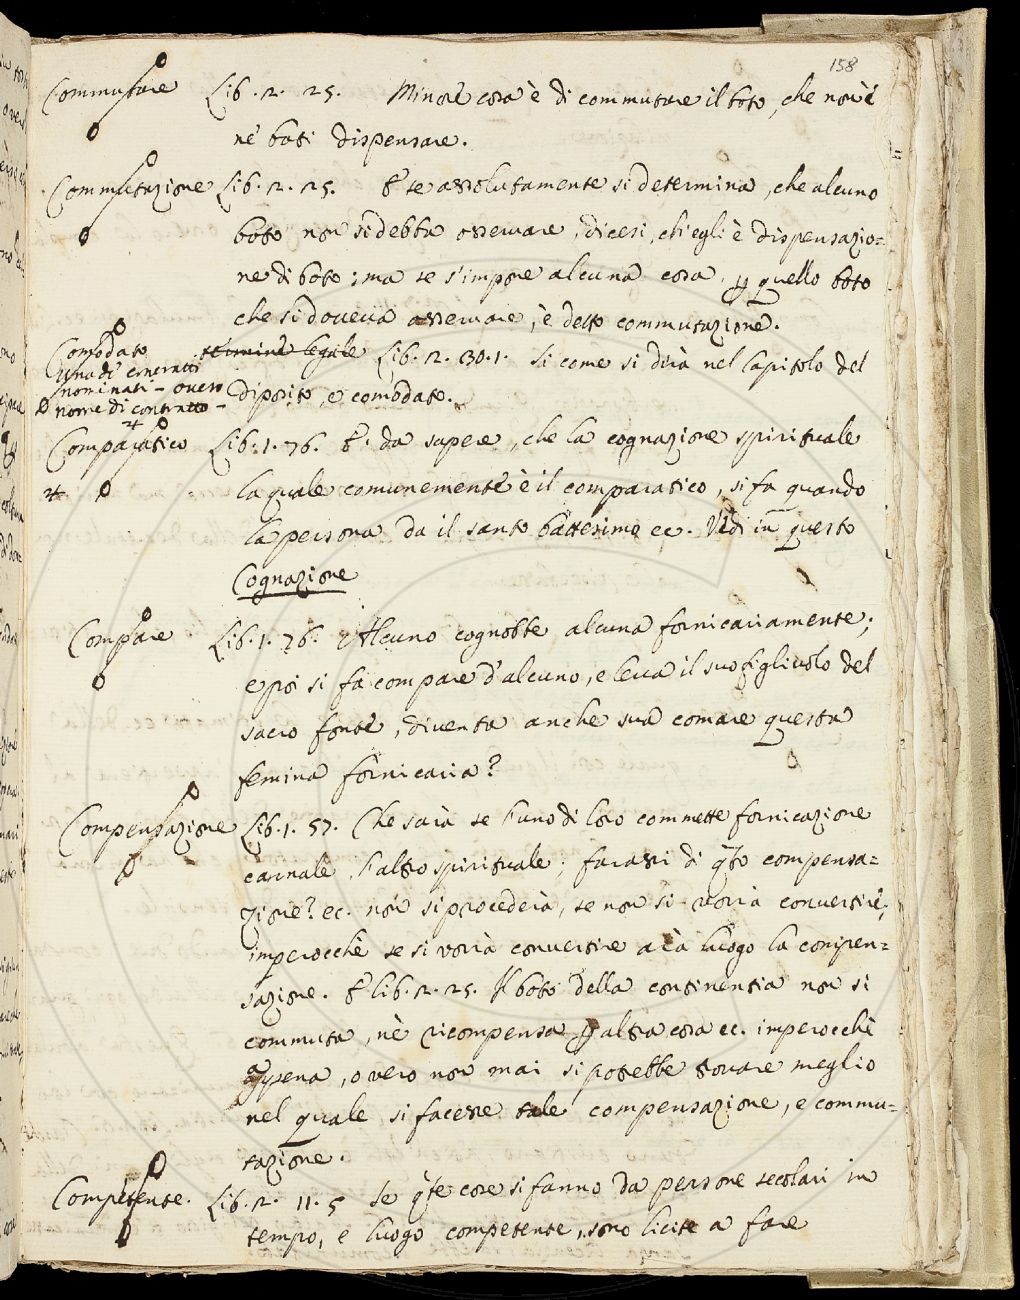 158
Commutare Lib. 2. 25. Minore cosa è di commutare il boto, che non è
ne' boti dispensare.
Commutazione Lib. 2. 25. E se assolutamente si determina, che alcuno
boto non si debba osservare, dicesi, ch'egli è dispensazio=
ne di boto; ma se s'impone alcuna cosa, ꝑ quello boto
che si doveva osservare, è detto commutazione.
Comodato termine legale Lib. 2. 30. 1. Si come si dirà nel Capitolo del
Uno de' contratti
nominati - overo diposito, e comodato.
nome di contratto -
Comparatico Lib. 1. 76. E' da sapere, che la cognazione spirituale
la quale comunemente è il comparatico, si fa quando
la persona da il santo battesimo ec. Vedi in questo
Cognazione
Compare Lib. 1. 76. Alcuno cognobbe alcuna fornicariamente;
e poi si fa compare d'alcuno, e leva il suo figliuolo del
sacro fonte, diventa anche sua comare questa
femina fornicaria?
Compensazione Lib. 1. 57. Che sarà se l'uno di loro commette fornicazione
carnale, l'altro spirituale; farassi di q̃to compensa=
zione? ec. non si procederà, se non si vorrà convertire;
imperocchè se si vorrà convertire arà luogo la compen=
sazione. E lib. 2. 25. Il boto della continentia non si
commuta, nè ricompensa ꝑ altra cosa ec. imperocchè
appena, o vero non mai si potrebbe trovare meglio
nel quale si facesse tale compensazione, e commu=
tazione.
Competente. Lib. 2. 11. 5 Se q̃te cose si fanno da persone secolari in
tempo, e luogo competente, sono licite a fare